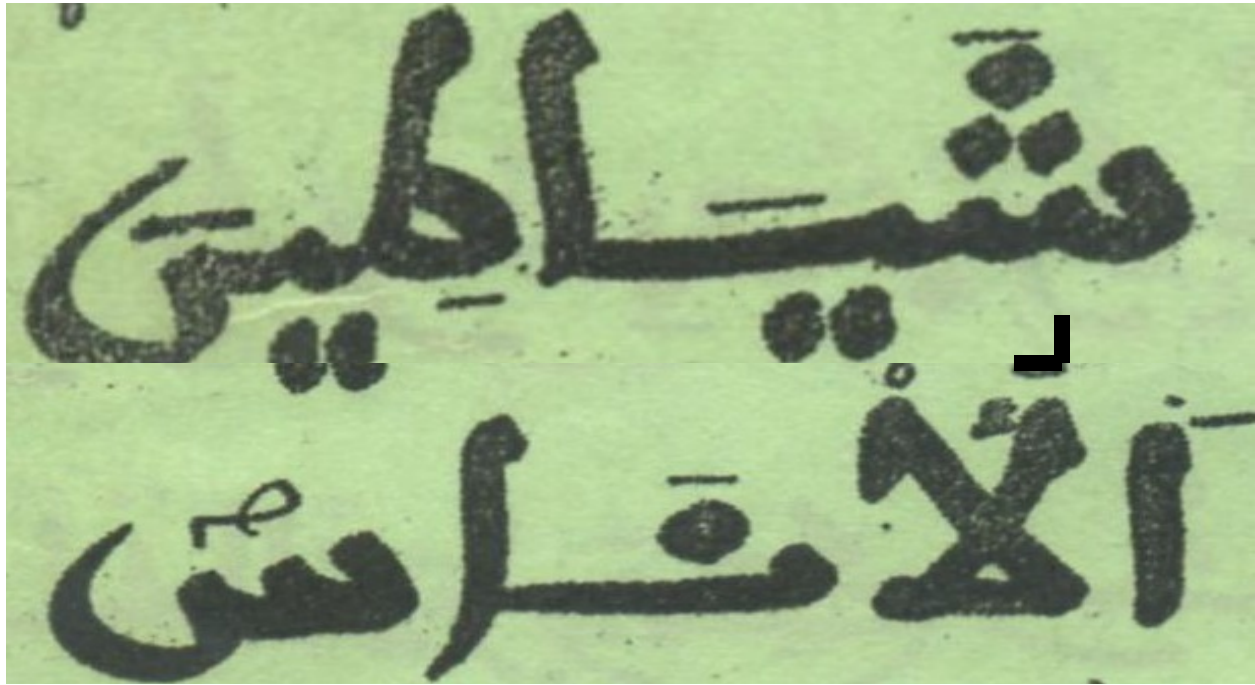 شَيَاطِينَ
الْأَنَاسُ